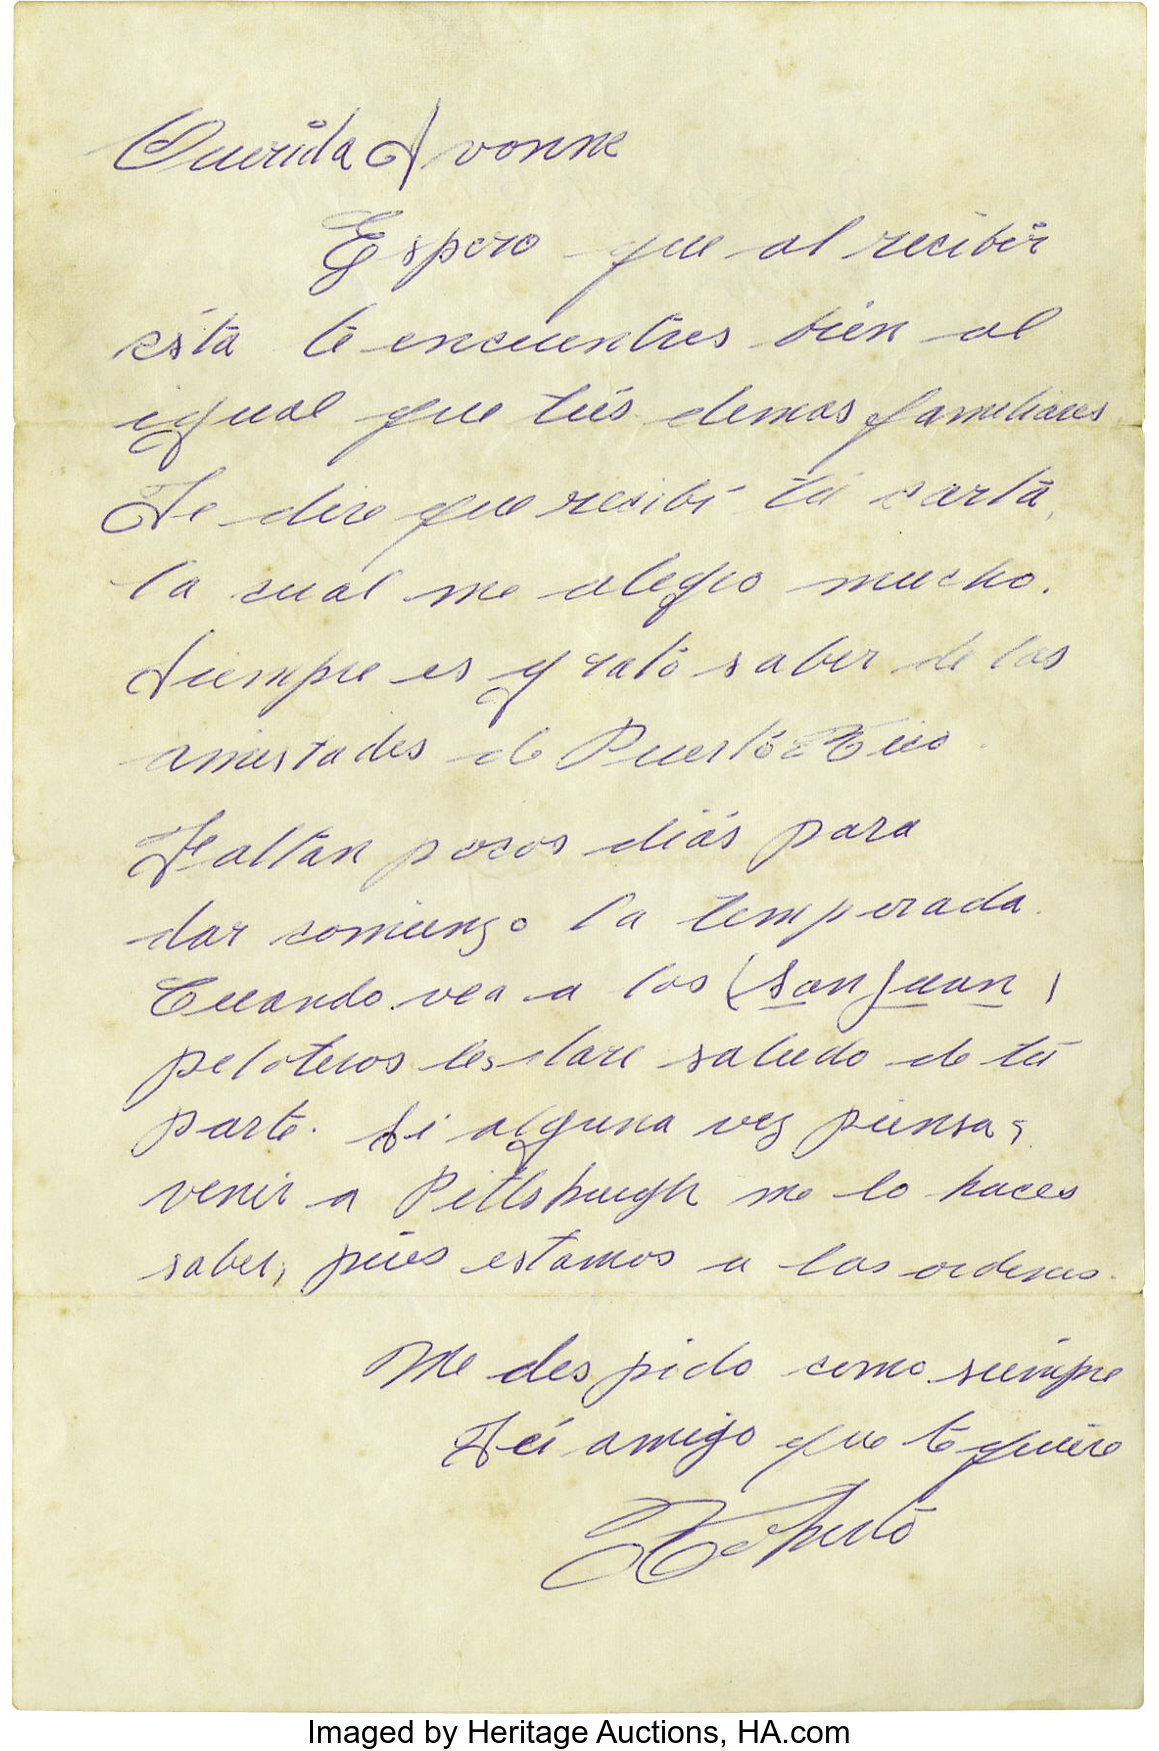 Querida Ivonne
Espero que al recibir
ésta te encuentres bien al
igual que tús demas familiares
Te dire que recibí tú carta,
la cual me alegro mucho.
Siempre es grato saber de las
amistades de Puerto Rico.
Faltan pocos días para
dar comienzo la temperada.
Cuando vea a los (San Juan)
peloteros les dare saludo de tú
parte. Si alguna vez piensas
venir a Pittsburgh me lo haces
saber, pues estamos a las ordenes.
Me despido como siempre
Tú amigo que te quiere
Roberto
Imaged by Heritage Auctions, HA.com